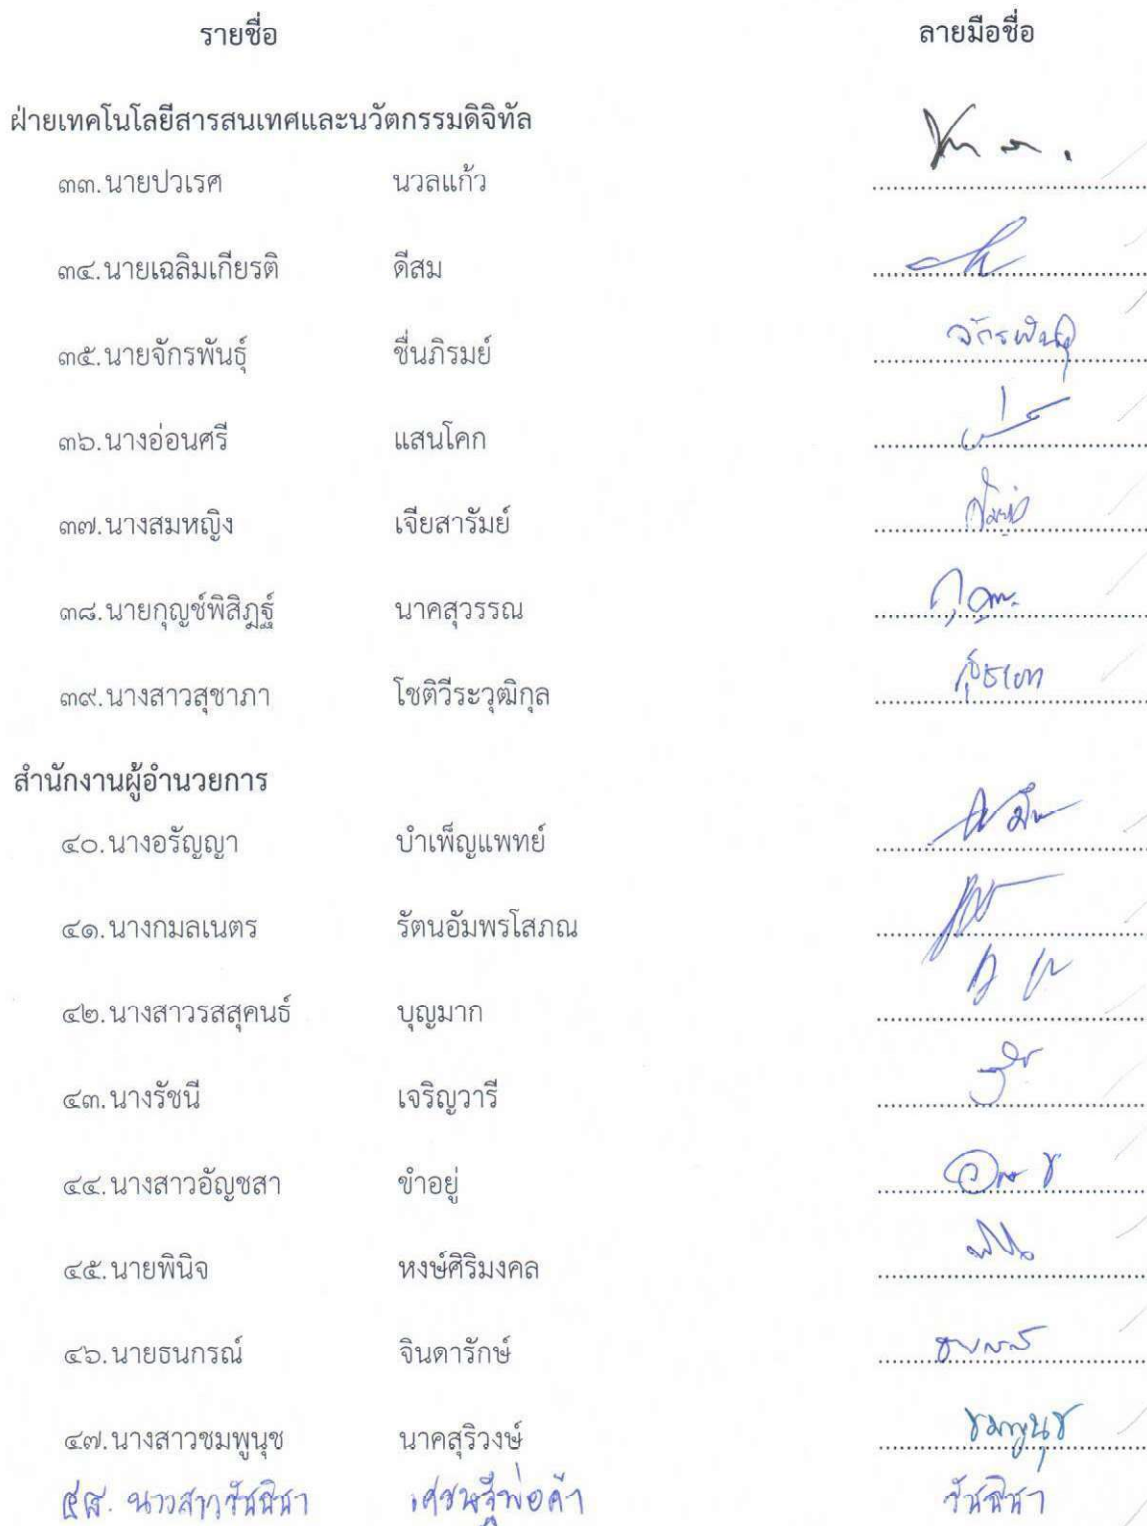 รายชื่อ ลายมือชื่อ
ฝ่ายเทคโนโลยีสารสนเทศและนวัตกรรมดิจิทัล
๓๓.นายปวเรศ นวลแก้ว
๓๔.นายเฉลิมเกียรติ ดีสม
๓๕.นายจักรพันธุ์ ชื่นภิรมย์ จักรพันธุ์
๓๖.นางอ่อนศรี แสนโคก
๓๗.นางสมหญิง เจียสารัมย์
๓๘.นายกุญช์พิสิฎฐ์ นาคสุวรรณ
๓๙.นางสาวสุชาภา โชติวีระวุฒิกุล
สำนักงานผู้อำนวยการ
๔๐.นางอรัญญา บำเพ็ญแพทย์
๔๑.นางกมลเนตร รัตนอัมพรโสภณ
๔๒.นางสาวรสสุคนธ์ บุญมาก
๔๓.นางรัชนี เจริญวารี
๔๔.นางสาวอัญชสา ขำอยู่
๔๕.นายพินิจ หงษ์ศิริมงคล
๔๖.นายธนกรณ์ จินดารักษ์
๔๗.นางสาวชมพูนุช นาคสุริวงษ์ ชมพูนุช
นางสาว เศรษฐีพ่อค้า